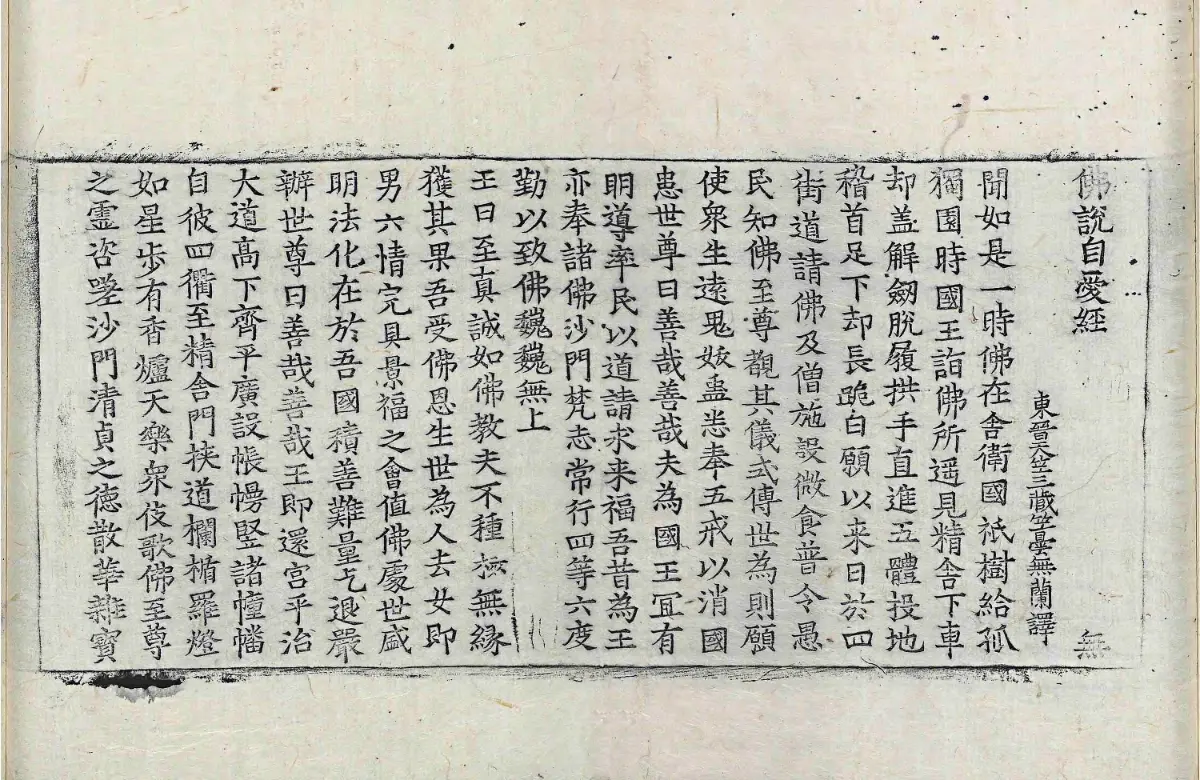 佛說自愛經 無
東晉天竺三藏竺曇無蘭譯
聞如是一時佛在舍衛國祇樹給孤
獨園時國王詣佛所遥見精舍下車
却盖解劒脫履拱手直進五體投地
稽首足下却長跪白願以来日於四
街道請佛及僧施設微食普令愚
民知佛至尊觀其儀式傳世為則願
使衆生遠鬼妖蠱悉奉五戒以消國
患世尊曰善哉善哉夫為國王冝有
明導率民以道請求来福吾昔為王
亦奉諸佛沙門梵志常行四等六度
勤以致佛巍巍無上
王曰至真誠如佛教夫不種 無緣
獲其果吾受佛恩生世為人去女即
男六情完具景福之會值佛處世盛
明法化在於吾國積善難量乞退嚴
辦世尊曰善哉善哉王即還宮平治
大道高下齊平廣設帳幔竪諸幢幡
自彼四衢至精舍門挾道欄楯羅燈
如星步有香爐天樂衆伎歌佛至尊
之靈咨嗟沙門清貞之德散華雜寶